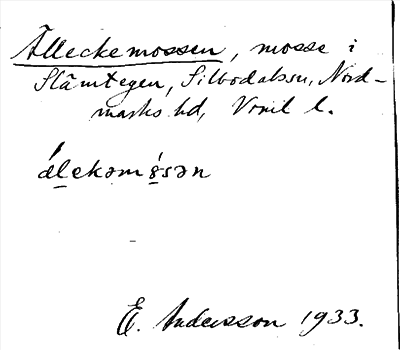 Älleckemossen, mosse i
Slämtegen, Silbodalssn, Nord-
marks hd, Vrml l.
álekəmòsən
E. Andersson 1933.